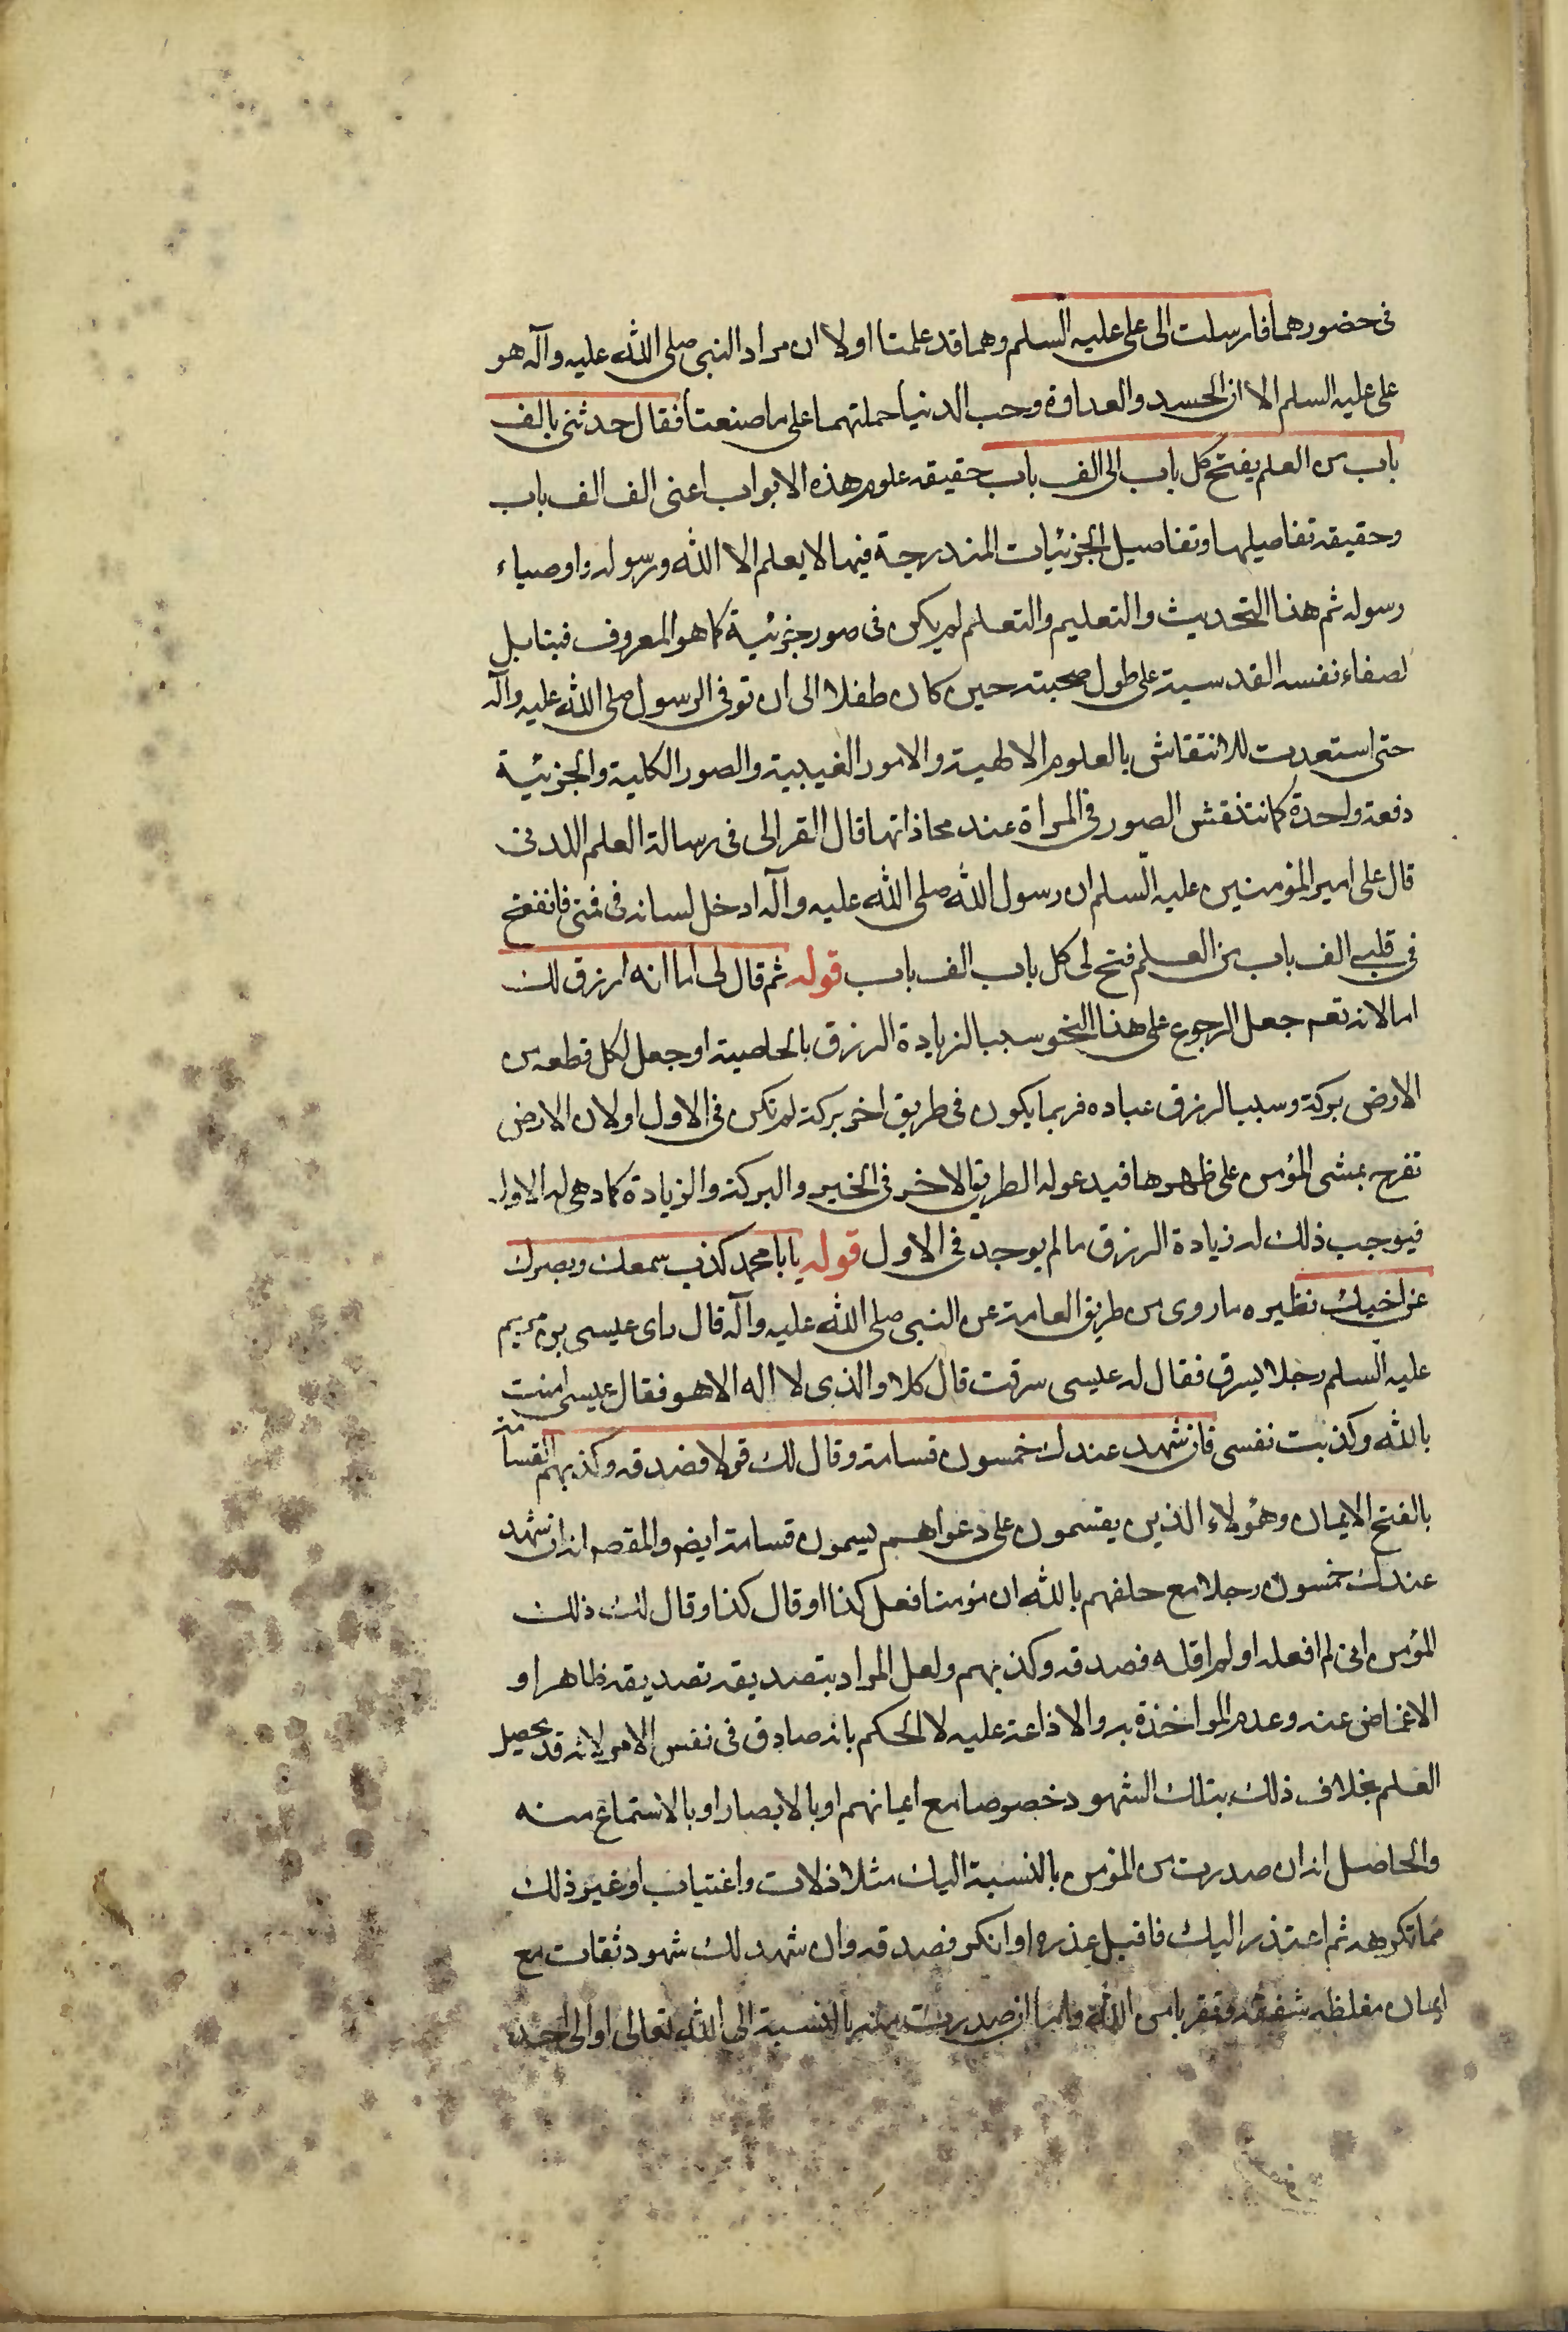 فى حضورهما فارسلت الى على عليه السلم وهما قد علمتا اولا ان مراد النبى صلى الله عليه وآله هو
على عليه السلم الا ان الحسد والعداوة وحب الدنيا حملتهما على ما صنعتا فقال حدثنى بالف
باب من العلم يفتح كل باب الى الف باب حقيقة علوم هذه الابواب اعنى الف الف باب
وحقيقة تفاصيلها وتفاصيل الجزئيات المندرجة فيها لا يعلم الا الله ورسوله واوصياء
رسوله ثم هذا التحديث والتعليم والتعلم لم يكن فى صور جزئية كما هو المعروف فينا بل
لصفاء نفسه القدسية على طول صحبته حين كان طفلا الى ان توفى الرسول صلى الله عليه وآله
حتى استعدت للانتقاش بالعلوم الالهية والامور الغيبية والصور الكلية والجزئية
دفعة واحدة كما تنتقش الصور فى المراة عند محاذاتها قال الغزالى فى رسالة العلم اللدنى
قال على امير المؤمنين عليه السلم ان رسول الله صلى الله عليه وآله ادخل لسانه فى فمى فانفتح
فى قلبى الف باب من العلم فتح لى كل باب الف باب قوله ثم قال لى اما انه ارزق لك
اما لانه تعم جعل الرجوع على هذا النحو سببا لزيادة الرزق بالخاصية او جعل لكل قطعه من
الارض بركة وسببا لرزق عباده فربما يكون فى طريق اخر بركة لم تكن فى الاول او لان الارض
تفرح بمشى المؤمن على ظهرها فيدعو له الطريق الاخر فى الخير والبركة والزيادة كما دعى له الاول
فيوجب ذلك له زيادة الرزق ما لم يوجد فى الاول قوله يابا محمد كذب سمعك وبصرك
عن اخيك نظيره ما روى من طريق العامة عن النبى صلى الله عليه وآله قال راى عيسى بن مريم
عليه السلم رجلا يسرق فقال له عيسى سرقت قال كلا والذى لا اله الا هو فقال عيسى امنت
بالله وكذبت نفسى فان شهد عندك خمسون قسامة وقال لك قولا فصدقه وكذبهم القسامة
بالفتح الايمان وهؤلاء الذين يقسمون على دعواهم يسمون قسامة ايض والمقصـ انه ان شهد
عندك خمسون رجلا مع حلفهم بالله ان مؤمنا فعل كذا او قال كذا وقال لك ذلك
المؤمن انى لم افعله او لم اقله فصدقه وكذبهم ولعل المراد بتصديقه تصديقه ظاهرا و
الاغماض عنه وعدم المواخذة به والاذاعة عليه لا الحكم بانه صادق فى نفس الامر لانه قد يحصل
العلم بخلاف ذلك بتلك الشهود خصوصا مع ايمانهم او بالابصار او بالاستماع منه
والحاصل انه ان صدرت من المؤمن بالنسبة اليك مثلا زلات واغتياب او غير ذلك
مما تكرهه ثم اعتذر اليك فاقبل عذره او انكر فصدقه وان شهد لك شهود ثقات مع
ايمان مغلظه شفقة وتقربا من الله واما ان صدرت منه بالنسبة الى الله تعالى او الى احد